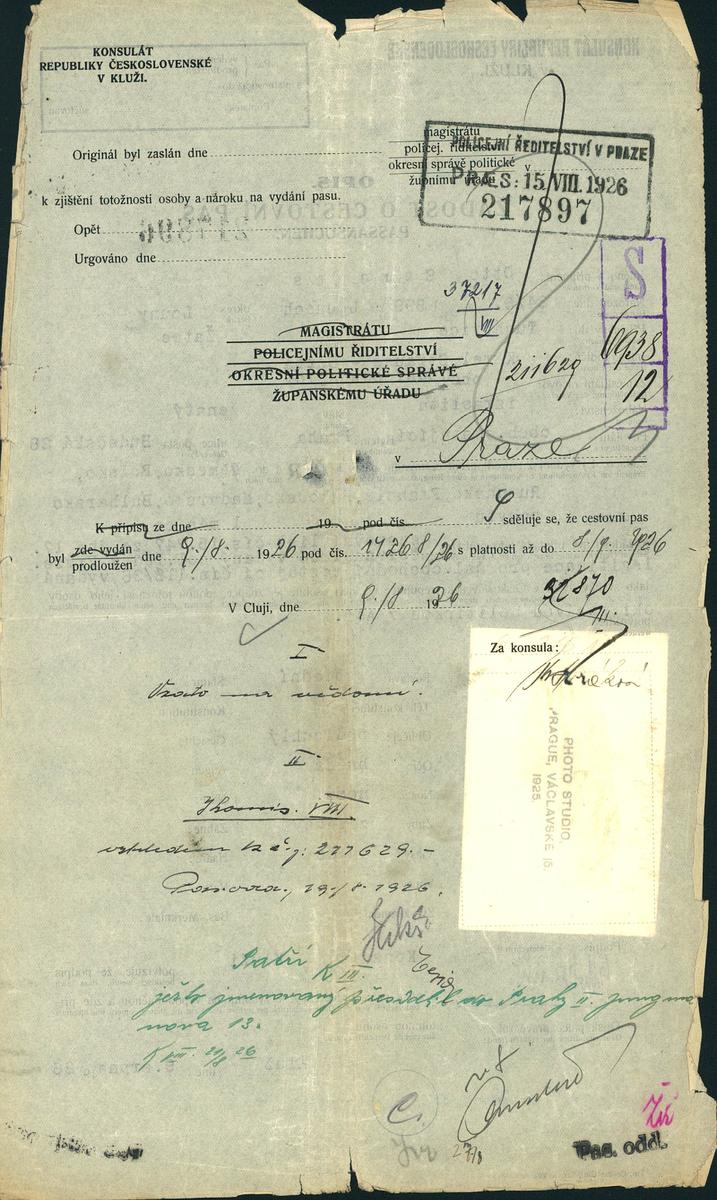 KONSULÁT
REPUBLIKY ČESKOSLOVENSKÉ
V KLUŽI.
Originál byl zaslán dne
magistrátu
policej. řiditelství
okresní správě politické v
župnímu úřadu
POLICEJNÍ ŘEDITELSTVÍ V PRAZE
PRES: 15. VIII. 1926
217897
k zjištění totožnosti osoby a nároku na vydání pasu.
Opět
Urgováno dne
S
6938
12
37217
VIII
MAGISTRÁTU
POLICEJNÍMU ŘIDITELSTVÍ
OKRESNÍ POLITICKÉ SPRÁVĚ
ŽUPANSKÉMU ÚŘADU
211629
v Praze
K přípisu ze dne 19 pod čís. S sděluje se, že cestovní pas
byl zde vydán
prodloužen dne 9./8. 1926 pod čís. 17268/26 s platností až do 8/9. 1926
V Cluji, dne 9./8 1926
31870
III.
Za konsula:
PHOTO STUDIO
PRAGUE, VÁCLAVSKÉ
1925
I
Vzato na vědomí.
II
VIII.
vzhledem k č.j. 211629.-
19./8. 1926.
Patří K III.
ježto jmenovaný přesídlil do Prahy II. Jungma
nova 13.
K VIII. 20/8 26
27/8
Pas. odd.